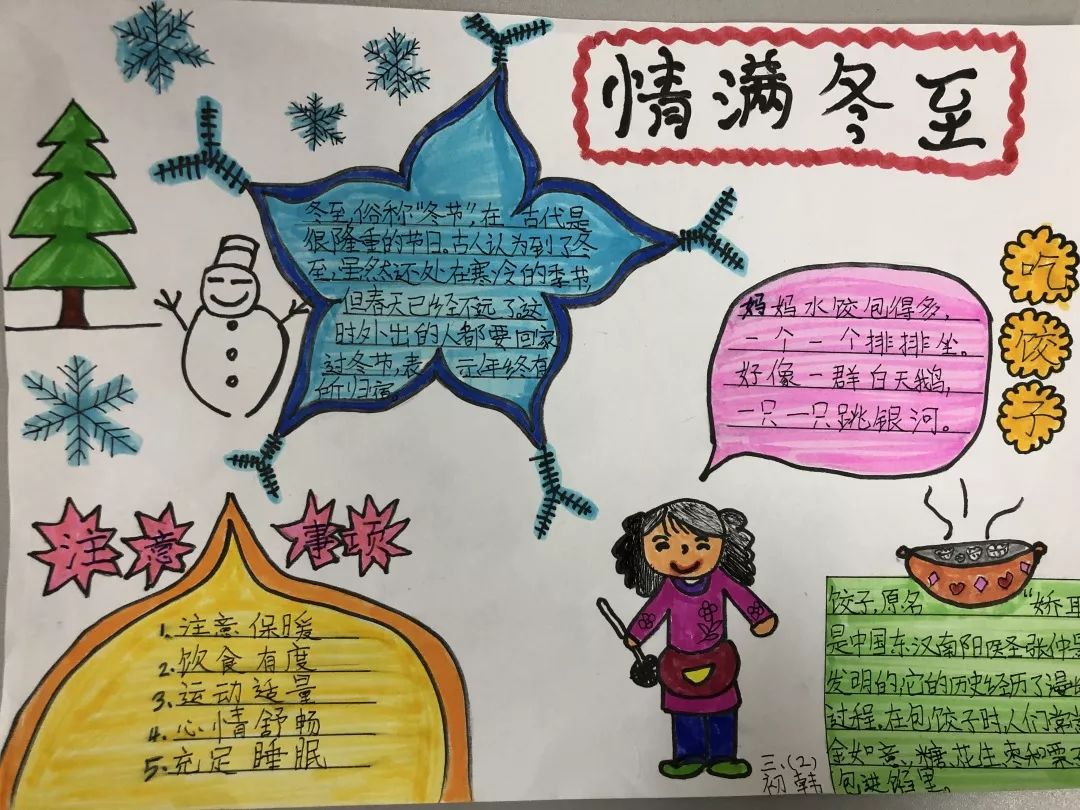 情满冬至
冬至,俗称"冬节",在 古代是
很隆重的节日。古人认为到了冬
至,虽然还处在寒冷的季节
但春天已经不远了,这
时外出的人都要回家
过冬节,表示年终有
所归宿。
吃
饺
子
妈妈水饺包得多,
一个一个排排坐。
好像一群白天鹅,
一只一只跳银河。
注意 事项
1.注意 保暖
2.饮食有度
3.运动适量
4.心情舒畅
5.充足睡眠
饺子,原名 "娇耳
是中国东汉南阳医圣张仲景
发明的,它的历史经历了漫长
过程.在包饺子时,人们常常
金如意、糖、花生、枣和栗子
包进馅里。
三、(2)
初韩